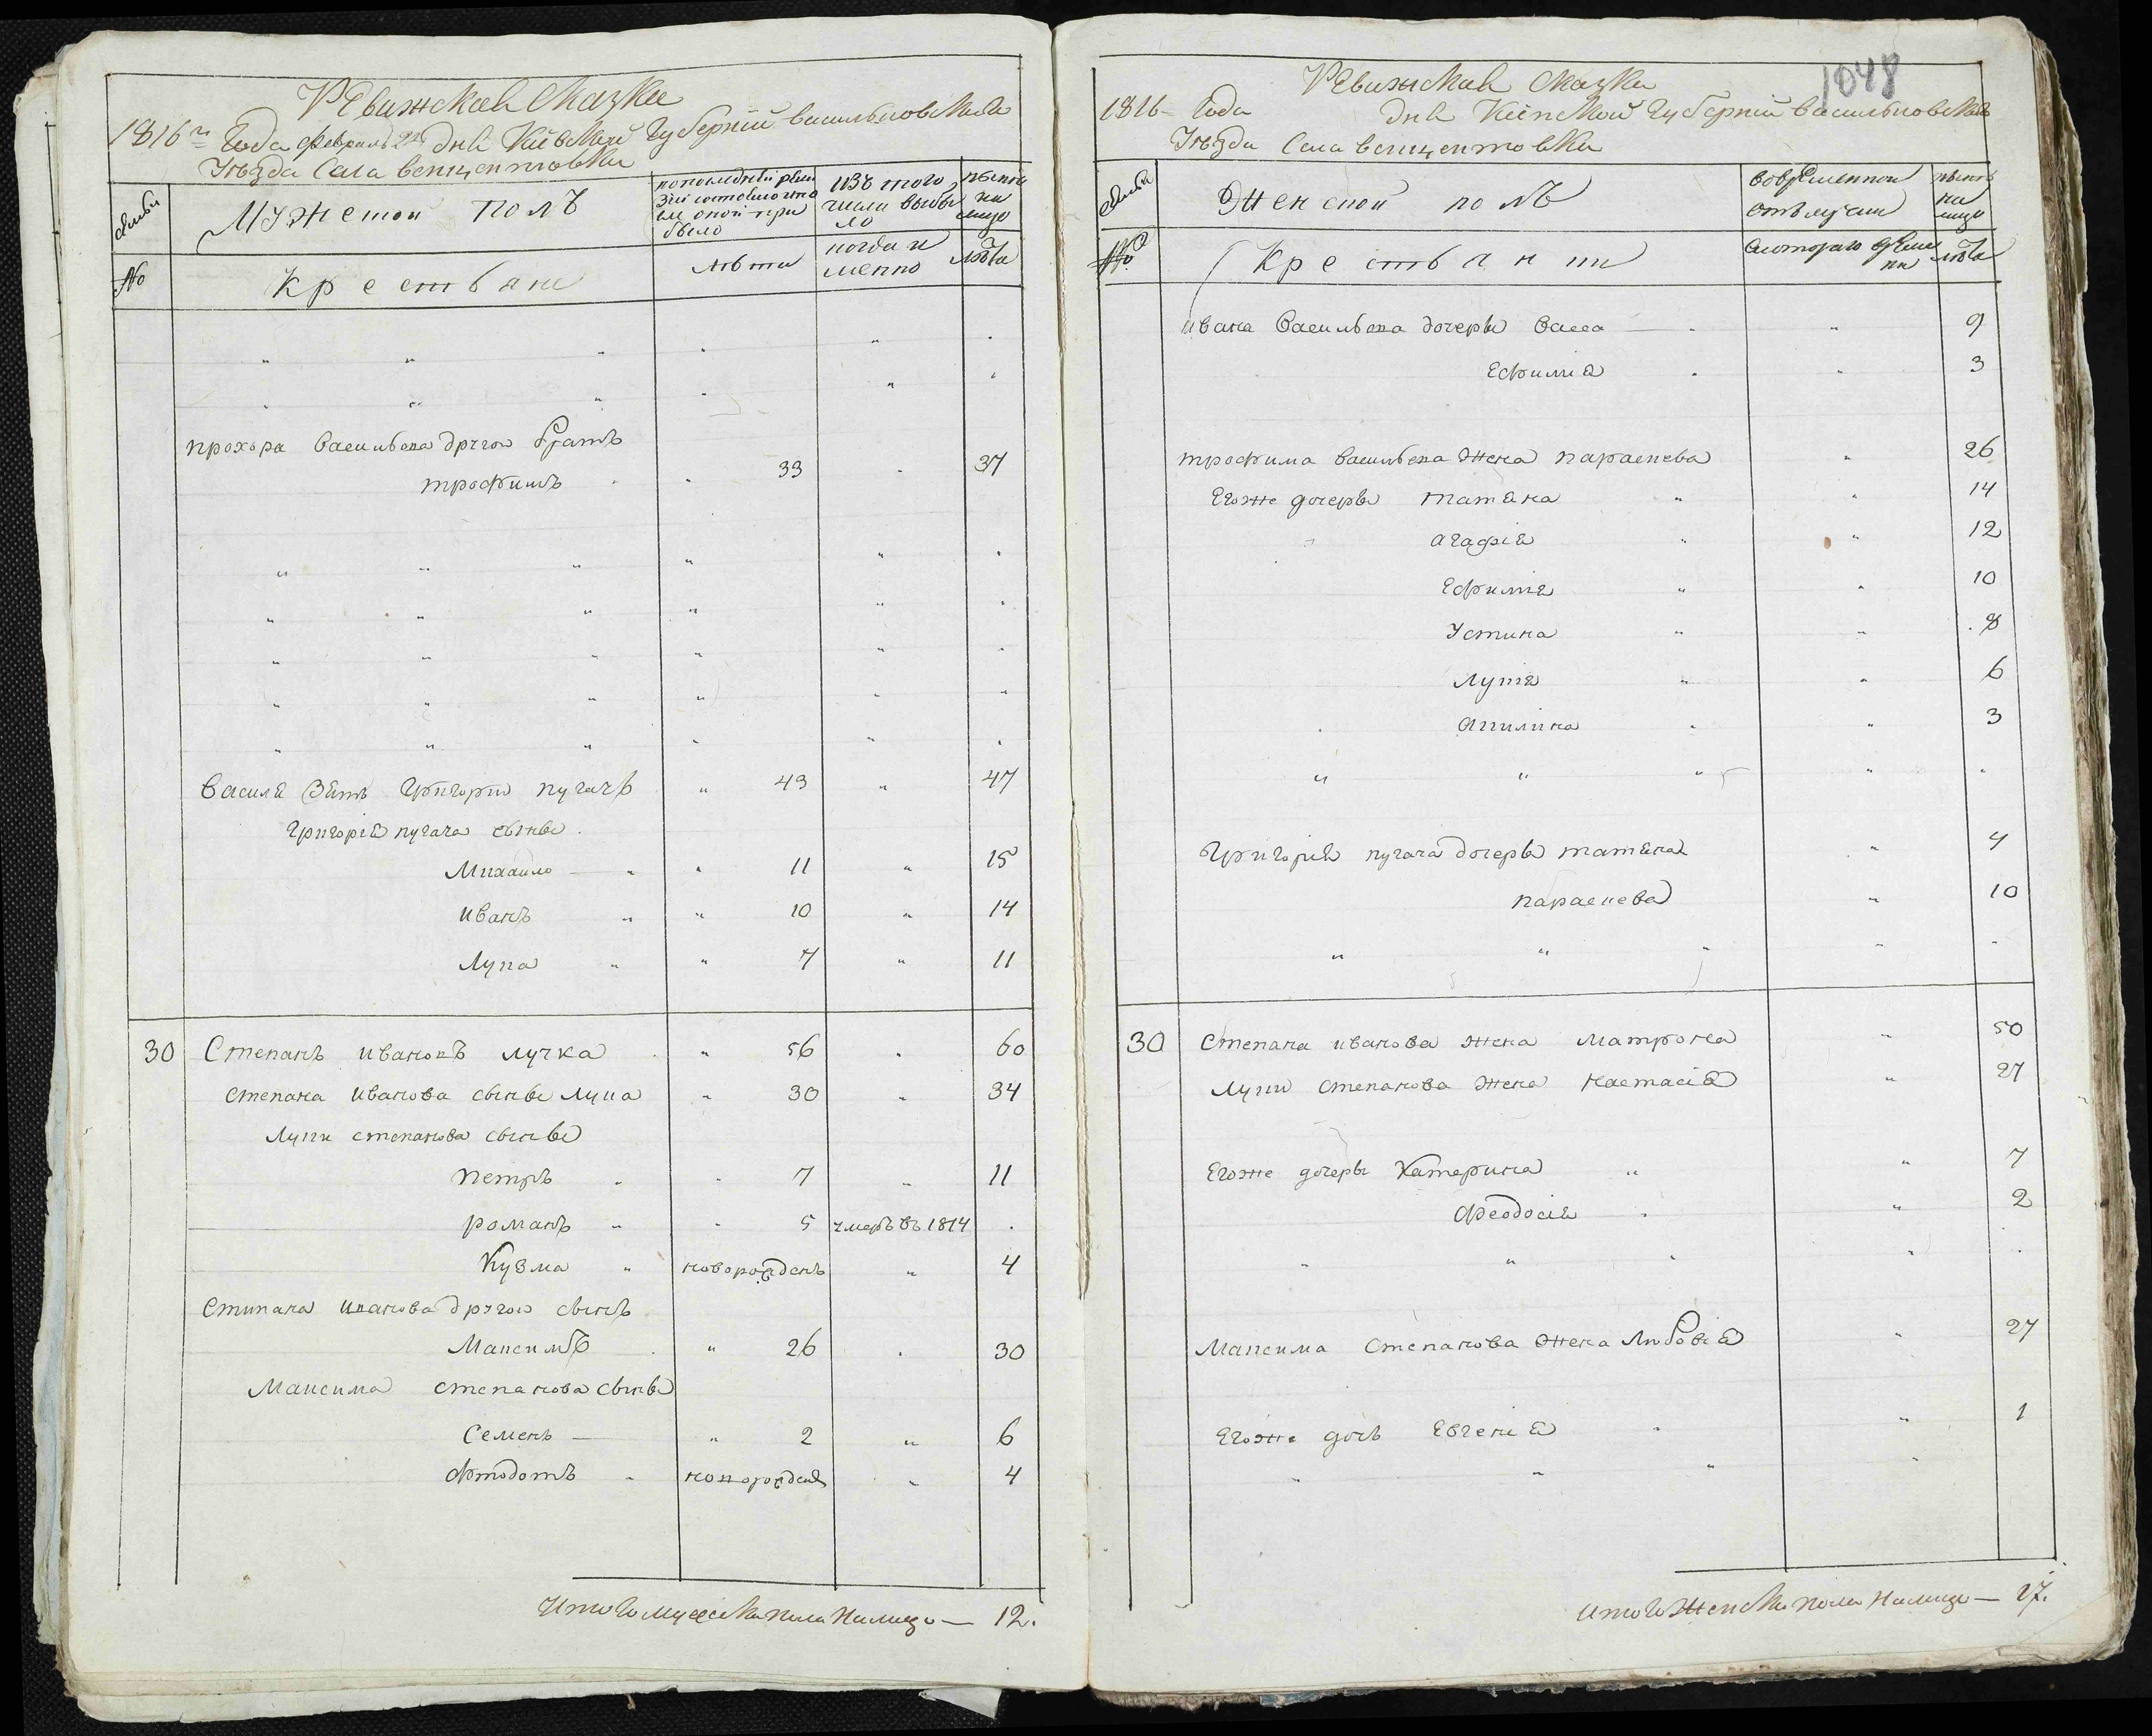 Ревижская сказка
1816го Года февраль 22 дня Киевской Губернiи васильковскаго
Уѣзда Села венцентовки
семьи
Мужескои полъ
По последнѣй ревизiи состояло и после оной прибыло
Изъ того числа выбыло
нынѣ на лицо
№
Крестьяне
лѣта
когда именно
лѣта
прохора васильева другои братъ
трофимъ 33 37
василя зять григорiи пугачъ 43 47
григорiя пугача сынве
Михаило 11 15
иванъ 10 14
Лупа 7 11
30 Степанъ ивановъ лучка 56 60
степана иванова сынве лупа 30 34
лупи степанова сынве
петръ 7 11
романъ 5 умеръ въ 1814
Кузма новорожденъ 4
Стипана иванова другои сынъ
Максимъ 26 30
Максима степанова сынве
Семенъ 2 6
Фтодотъ новорожденъ 4
Итого мужеска пола налицо — 12.
1048
Ревижская сказка
1816 Года дня Кiевской Губернiи васильковскаго
Уѣзда Села венцентовки
семьи
Женскои полъ
во временной отлучки
нынѣ на лицо
№
Крестьянки
с котораго времени
лѣта
ивана васильева дочеры васса 9
Ефимiя 3
трофима васильева жена параскева 26
Егоже дочеры татяна 14
агафiя 12
Ефимiя 10
Устина 8
лукiя 6
Акилина 3
григорiя пугача дочеры татяна 4
параскева 10
30 Степана иванова жена матрона 50
лупи степанова жена настасiя 27
Егоже дочеры Катерина 7
феодосiя 2
максима степанова жена любовiя 27
Егоже дочь Евгенiя 1
Итого женска пола налицо — 17.